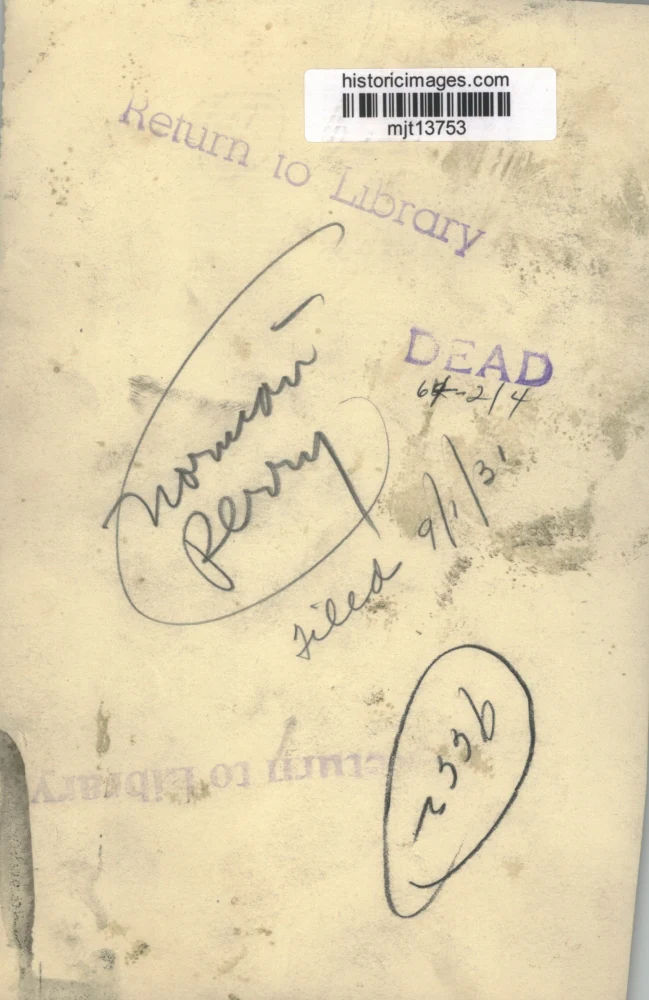 historicimages.com
mjt13753
Return to Library
DEAD
Norman
Perry
Filed 9/1/31
Return to Library